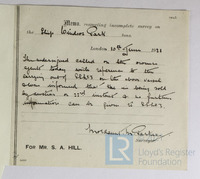 Memo. respecting incomplete survey on
the Ship Windsor Park
London 10th June 1931
The undersigned called on the owners
agents today with reference to the
carrying out of on the above vessel
& was informed that she is being sold
by auction on 11th instant & no further
information can be given to
Surveyor
FOR MR. S. A. HILL.
LR
Lloyd's Register
Foundation